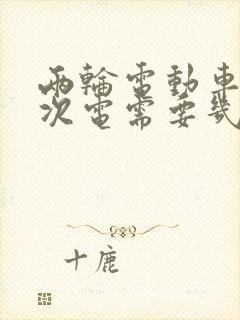 兩輪電動車
次電需要幾
十鹿